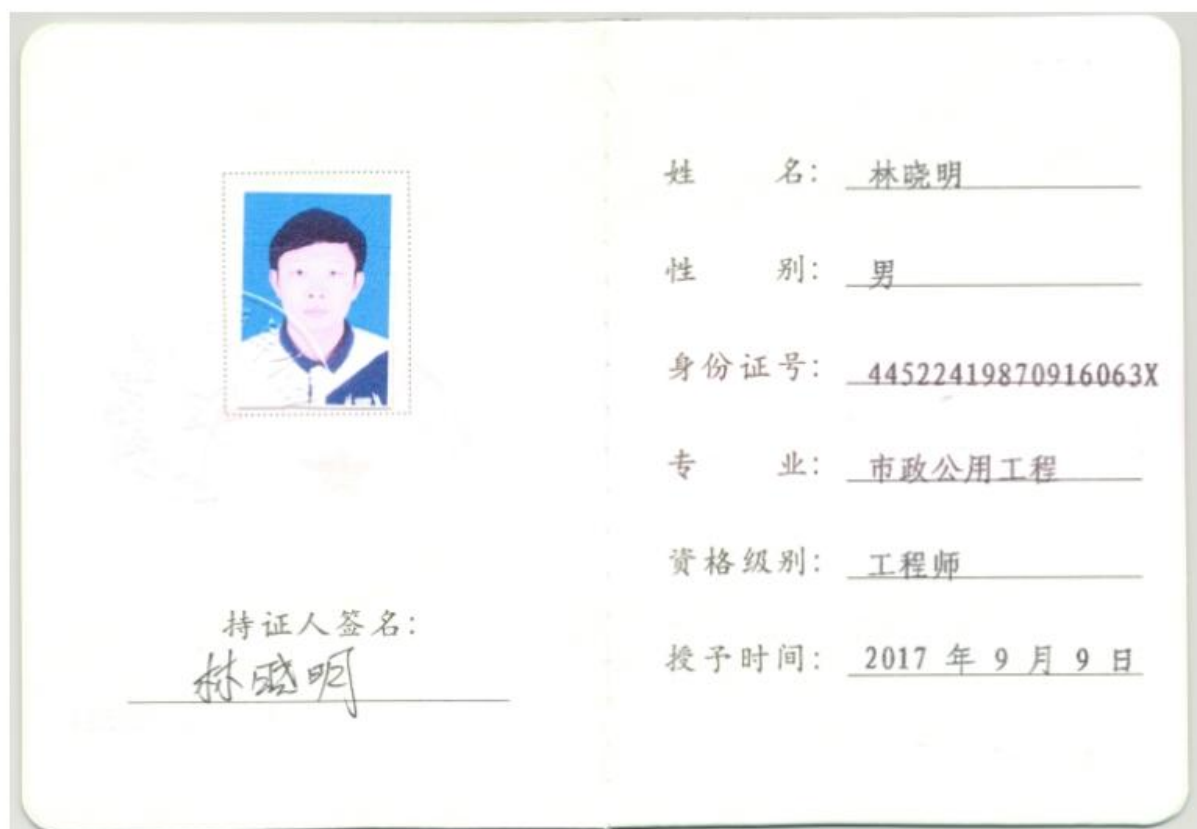 持证人签名：
林晓明
姓 名： 林晓明
性 别： 男
身份证号： 44522419870916063X
专 业： 市政公用工程
资格级别： 工程师
授予时间： 2017 年 9 月 9 日